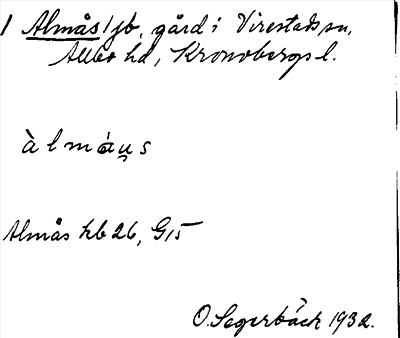 1 Almås 1 jb, gård i Virestads sn,
Allbo hd, Kronobergs l.
àlmáu̯s
Almås hb 26, G15
O. Segerbäck 1932.